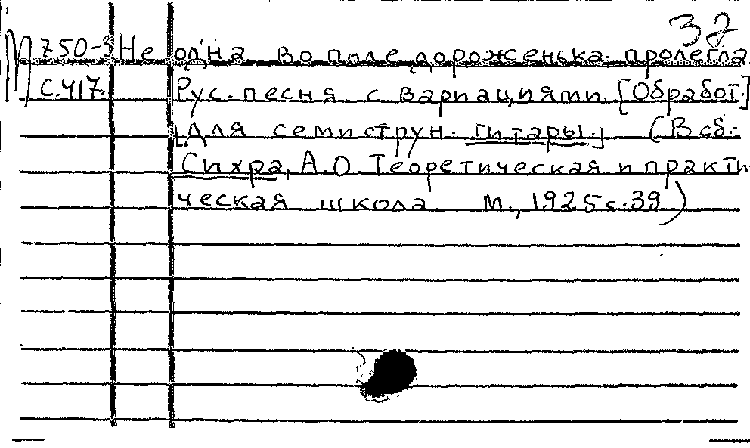 32
M 750-3 Не одна во поле дороженька пролегла
С.417 Рус. песня с вариациями [Обработ.]
[для семиструн. гитары.] (В сб:
Сихра, А.О Теоретическая и практи
ческая школа М., 1925 с.39)